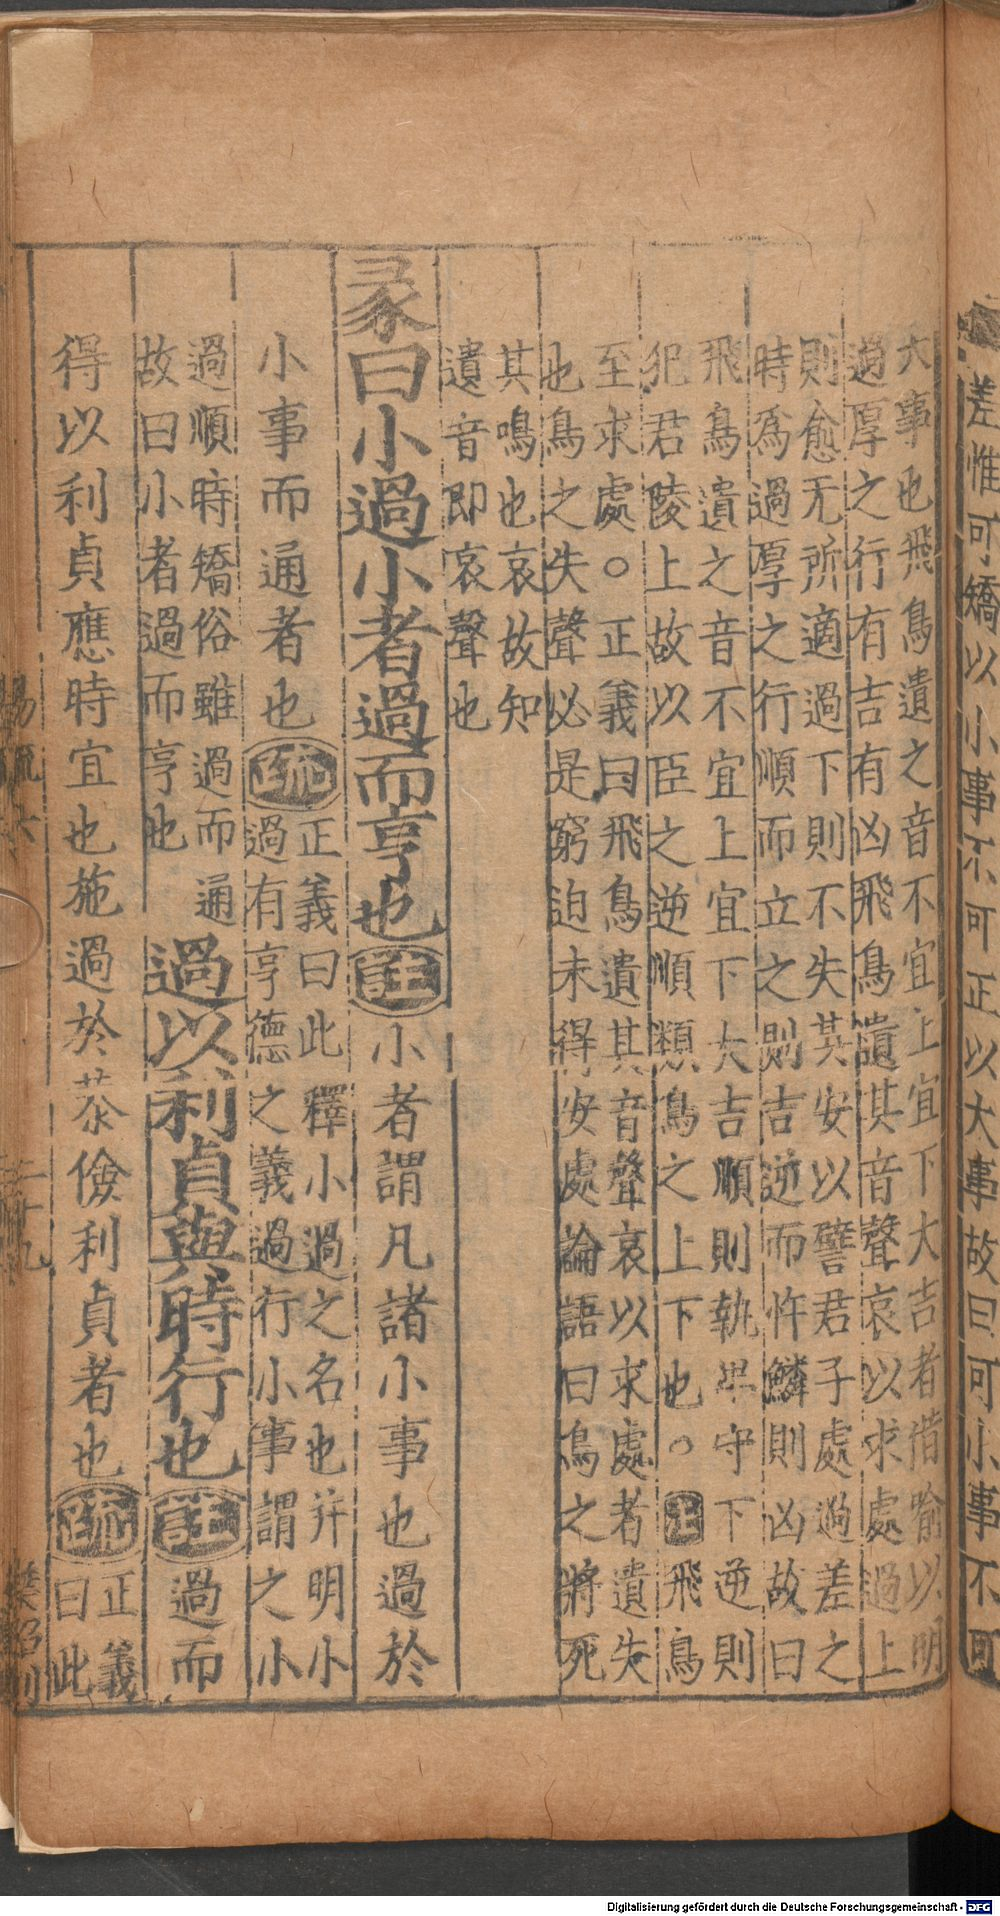 差惟可矯以小事不可正以大事故曰可小事不可
大事也飛鳥遺之音不宜上宜下大吉者借喻以明
過厚之行有吉有凶飛鳥遺其音聲哀以求處過上
則愈无所適過下則不失其安以譬君子處過差之
時爲過厚之行順而立之則吉逆而忤鱗則凶故曰
飛鳥遺之音不宜上宜下大吉順則執卑守下逆則
犯君陵上故以臣之逆順類鳥之上下也○注飛鳥
至求處○正義曰飛鳥遺其音聲哀以求處者遺失
也鳥之失聲必是窮迫未得安處論語曰鳥之將死
其鳴也哀故知
遺音即哀聲也
彖曰小過小者過而亨也註小者謂凡諸小事也過於
小事而通者也疏
正義曰此釋小過之名也并明小
過有亨德之義過行小事謂之小
過順時矯俗雖過而通
故曰小者過而亨也
過以利貞與時行也註過而
得以利貞應時宜也施過於恭儉利貞者也疏
正義
曰此
易疏六
二十九
Digitalisierung gefördert durch die Deutsche Forschungsgemeinschaft - DFG